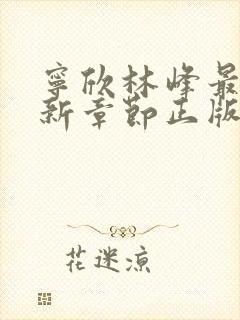 寧欣林峰最
新章節正版
花迷涼